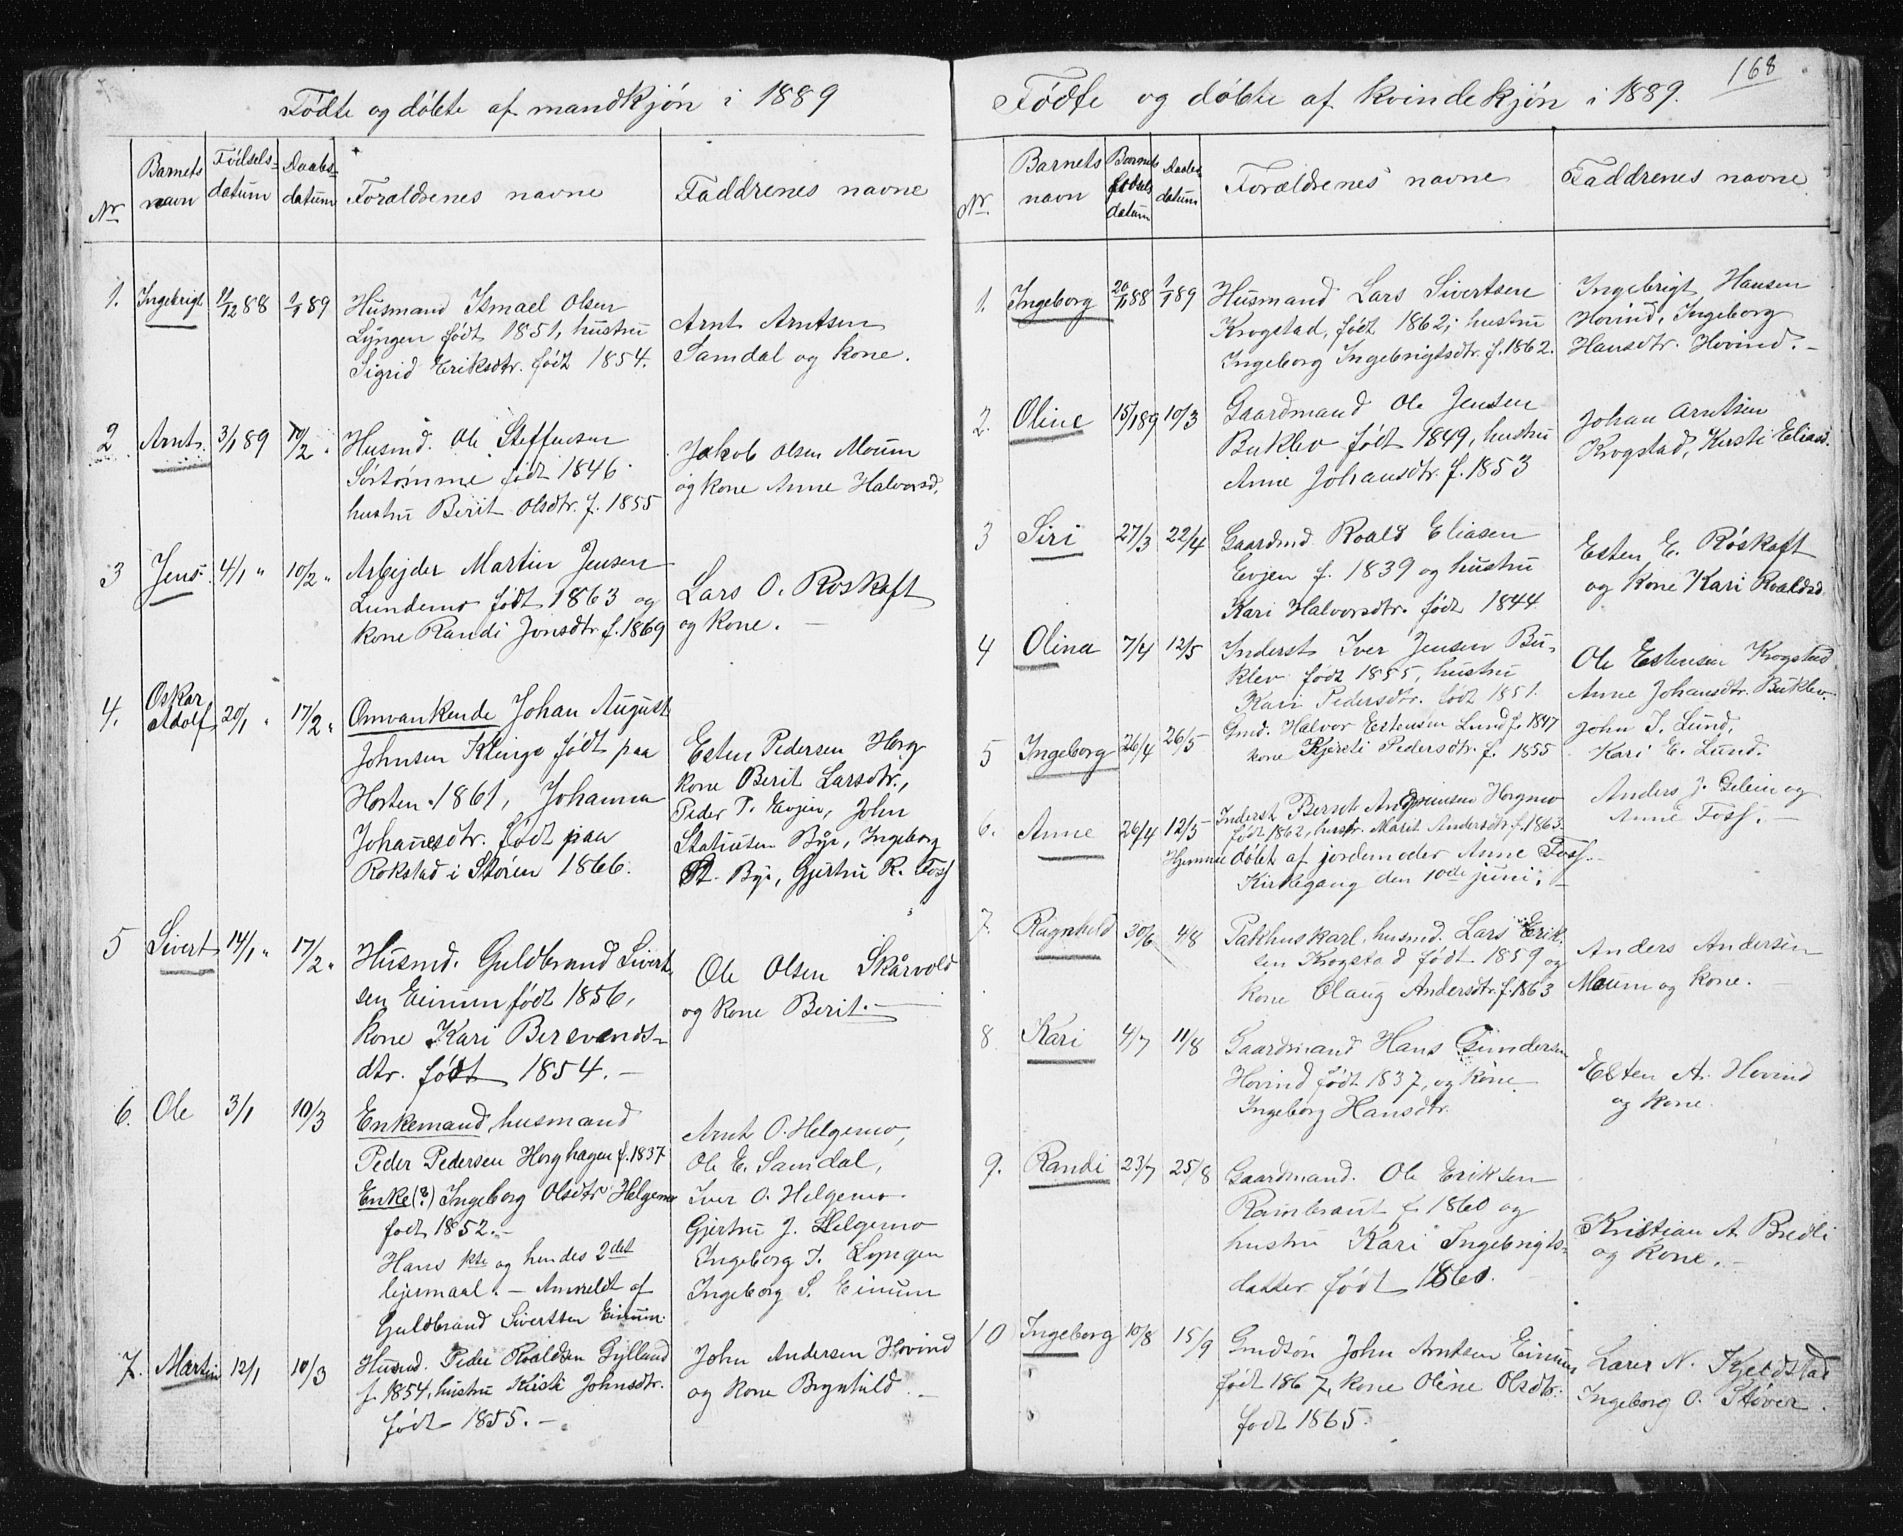 Fødte og døbte af mandkjøn i 1889
Nr
Barnets navn
Fødsels-datum
Daabs-datum
Forældrenes navne
Faddrenes navne
1. Ingebrigt 11/12 88 1/1 89
Husmand Ismael Olsen
Lyngen født 1851, hustru
Sigrid Eriksdtr. født 1854.
Arnt Arntsen
Samdal og kone.
2 Arnt. 3/1 89 10/2 "
Husmd. Ole Steffensen
Sortømme født 1846.
hustru Berit Olsdtr. f. 1855
Jakob Olsen Moum
og kone Anne Halvorsd.
3 Jens 4/1 " 10/2 "
Arbejder Martin Jensen
Lundemo født 1863 og
kone Randi Jonsdtr f. 1869
Lars O. Røskaft
og kone. —
4. Oskar Adolf 20/1 " 17/2 "
Omvankende Johan August
Johnsen Klinge født paa
Horten 1861, Johanna
Johanesdtr. født paa
Rokstad i Støren 1866.
Esten Pedersen Horg
kone Berit Larsdtr.,
Peder P. Evjen, John
Statiusen Bye, Ingeborg
St. Bye, Gjertru R. Foss
5 Sivert 14/1 " 17/2 "
Husmd. Guldbrand Sivert-
sen Einum født 1856,
kone Kari Bersvends-
dtr. født 1854. —
Ole Olsen Skårvold
og kone Berit. —
6. Ole 3/1 10/3
Enkemand, husmand
Peder Pedersen Horghagen f. 1837
Enke (?) Ingeborg Olsdtr Helgemo
født 1852. —
Hans 1ste og hendes 2det
lejermaal. — Anmeldt af
Guldbrand Sivertsen Einum.
Arnt O. Helgemo,
Ole E. Samdal,
Iver O. Helgemo.
Gjertru J. Helgemo
Ingeborg I. Lyngen
Ingeborg S. Einum
7. Martin 12/1 10/3
Husmd. Peder Roaldsen Gylland
f. 1854, hustru Kirsti Johnsdtr.
født 1855. —
John Andersen Hovind
og kone Brynhild. —
168
Fødte og døbte af kvindekjøn i 1889.
Nr.
Barnets navn
Barnets fødsels datum
Daabs datum
Forældrenes navne
Faddrenes navne
1. Ingeborg 20/11 88 1/1 89
Husmand Lars Sivertsen
Krogstad, født 1862; hustru
Ingeborg Ingebrigtsdtr. f. 1862.
Ingebrigt Hansen
Hovind, Ingeborg
Hansdtr. Hovind. —
2. Oline 15/1 89 10/3
Gaardmand Ole Jensen
Buklev født 1849, hustru
Anne Johansdtr. f. 1853
Johan Arntsen
Krogstad, Kirsti Eliasd.
3 Siri 27/3 22/4
Gaardmd. Roald Eliasen
Evjen f. 1839 og hustru
Kari Halvorsdtr. født 1844
Esten E. Røskaft
og kone Kari Roaldsd.
4 Olina 7/4 12/5
Inderst Iver Jensen Bu-
klev født 1855, hustru
Kari Pedersdtr. født 1851.
Ole Estensen Krogstad.
Anne Johansdtr. Buklev.
5 Ingeborg 26/4 26/5
Gmd. Halvor Estensen Lund f. 1847
kone Kjersti Pedersdtr. f. 1855
John I. Lund,
Kari E. Lund.
6. Anne 26/4 12/5
Inderst Bersvt Andreasen Horgmo
født 1862, hustr. Marit Andersdtr. f. 1863
Hjemmedøbt af jordemoder Anne Foss. —
Kirkegang den 10de juni. —
Anders J. Gelein og
Anne Foss. —
7. Ragnhild 30/6 4/8
Pakhuskarl, husmd. Lars Erik-
sen Krogstad født 1859 og
kone Olaug Andersdtr. f. 1863
Anders Andersen
Moum og kone. —
8 Kari 4/7 11/8
Gaardmand Hans Gundersen
Hovind født 1837, og kone
Ingeborg Hansdtr.
Esten A. Hovind
og kone.
9. Randi 23/7 25/8
Gaardmand. Ole Eriksen
Rambraut f. 1860 og
hustru Kari Ingebrigts-
datter født 1860.
Kristian A. Bredli
og kone. —
10 Ingeborg 10/8 15/9
Gmdsøn John Arntsen Einum
født 1867, kone Oline Olsdtr.
født 1865.
Larer N. Kjeldstad
Ingeborg O. Støver.